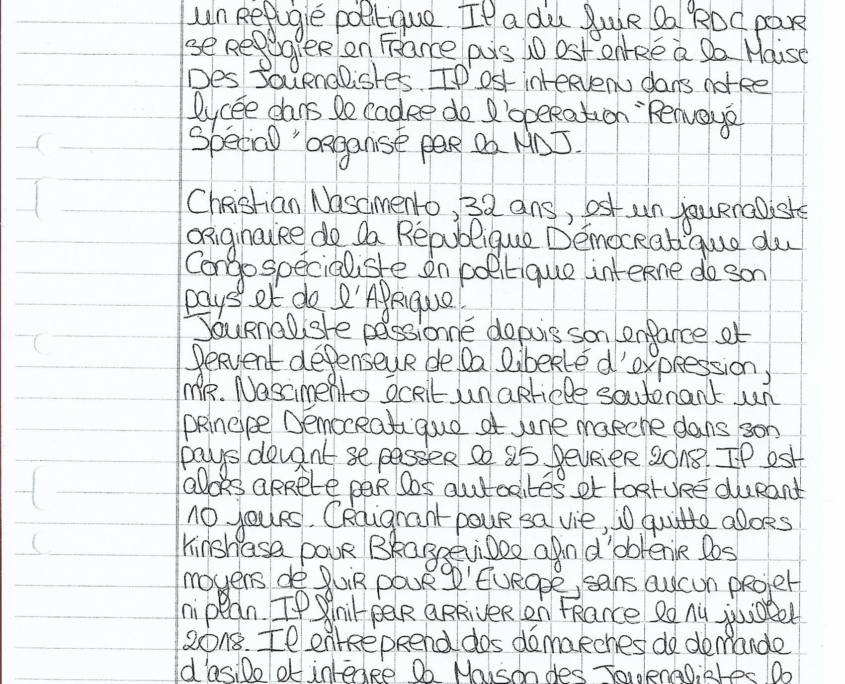 un réfugié politique. Il a du fuir la RDC pour
se réfugier en France puis il est entré à la Maiso
Des Journalistes. Il est intervenu dans notre
lycée dans le cadre de l'operation "Renvoyé
Spécial" organisé par la MDJ.
Christian Nascimento, 32 ans, est un journaliste
originaire de la République Démocratique du
Congo spécialiste en politique interne de son
pays et de l'Afrique.
Journaliste passionné depuis son enfance et
fervent défenseur de la liberté d'expression,
mR. Nascimento écrit un article soutenant un
principe Démocratique et une marche dans son
pays devant se passer le 25 fevrier 2018. Il est
alors arrête par les autorités et torturé durant
10 jours. Craignant pour sa vie, il quitte alors
Kinshasa pour Brazzeville afin d'obtenir les
moyens de fuir pour l'Europe, sans aucun projet
ni plan. Il finit par arriver en France le 14 juillet
2018. Il entreprend des démarches de demande
d'asile et intègre la Maison des Journalistes le